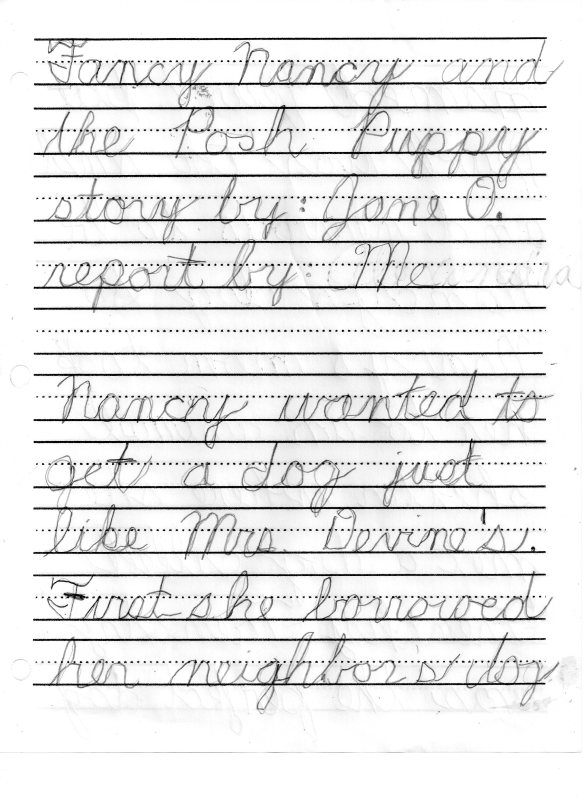 Fancy Nancy and
the Posh Puppy
story by: Jane O.
report by: Me

Nancy wanted to
get a dog just
like Mrs. Devine's.
First she borrowed
her neighbor's dog